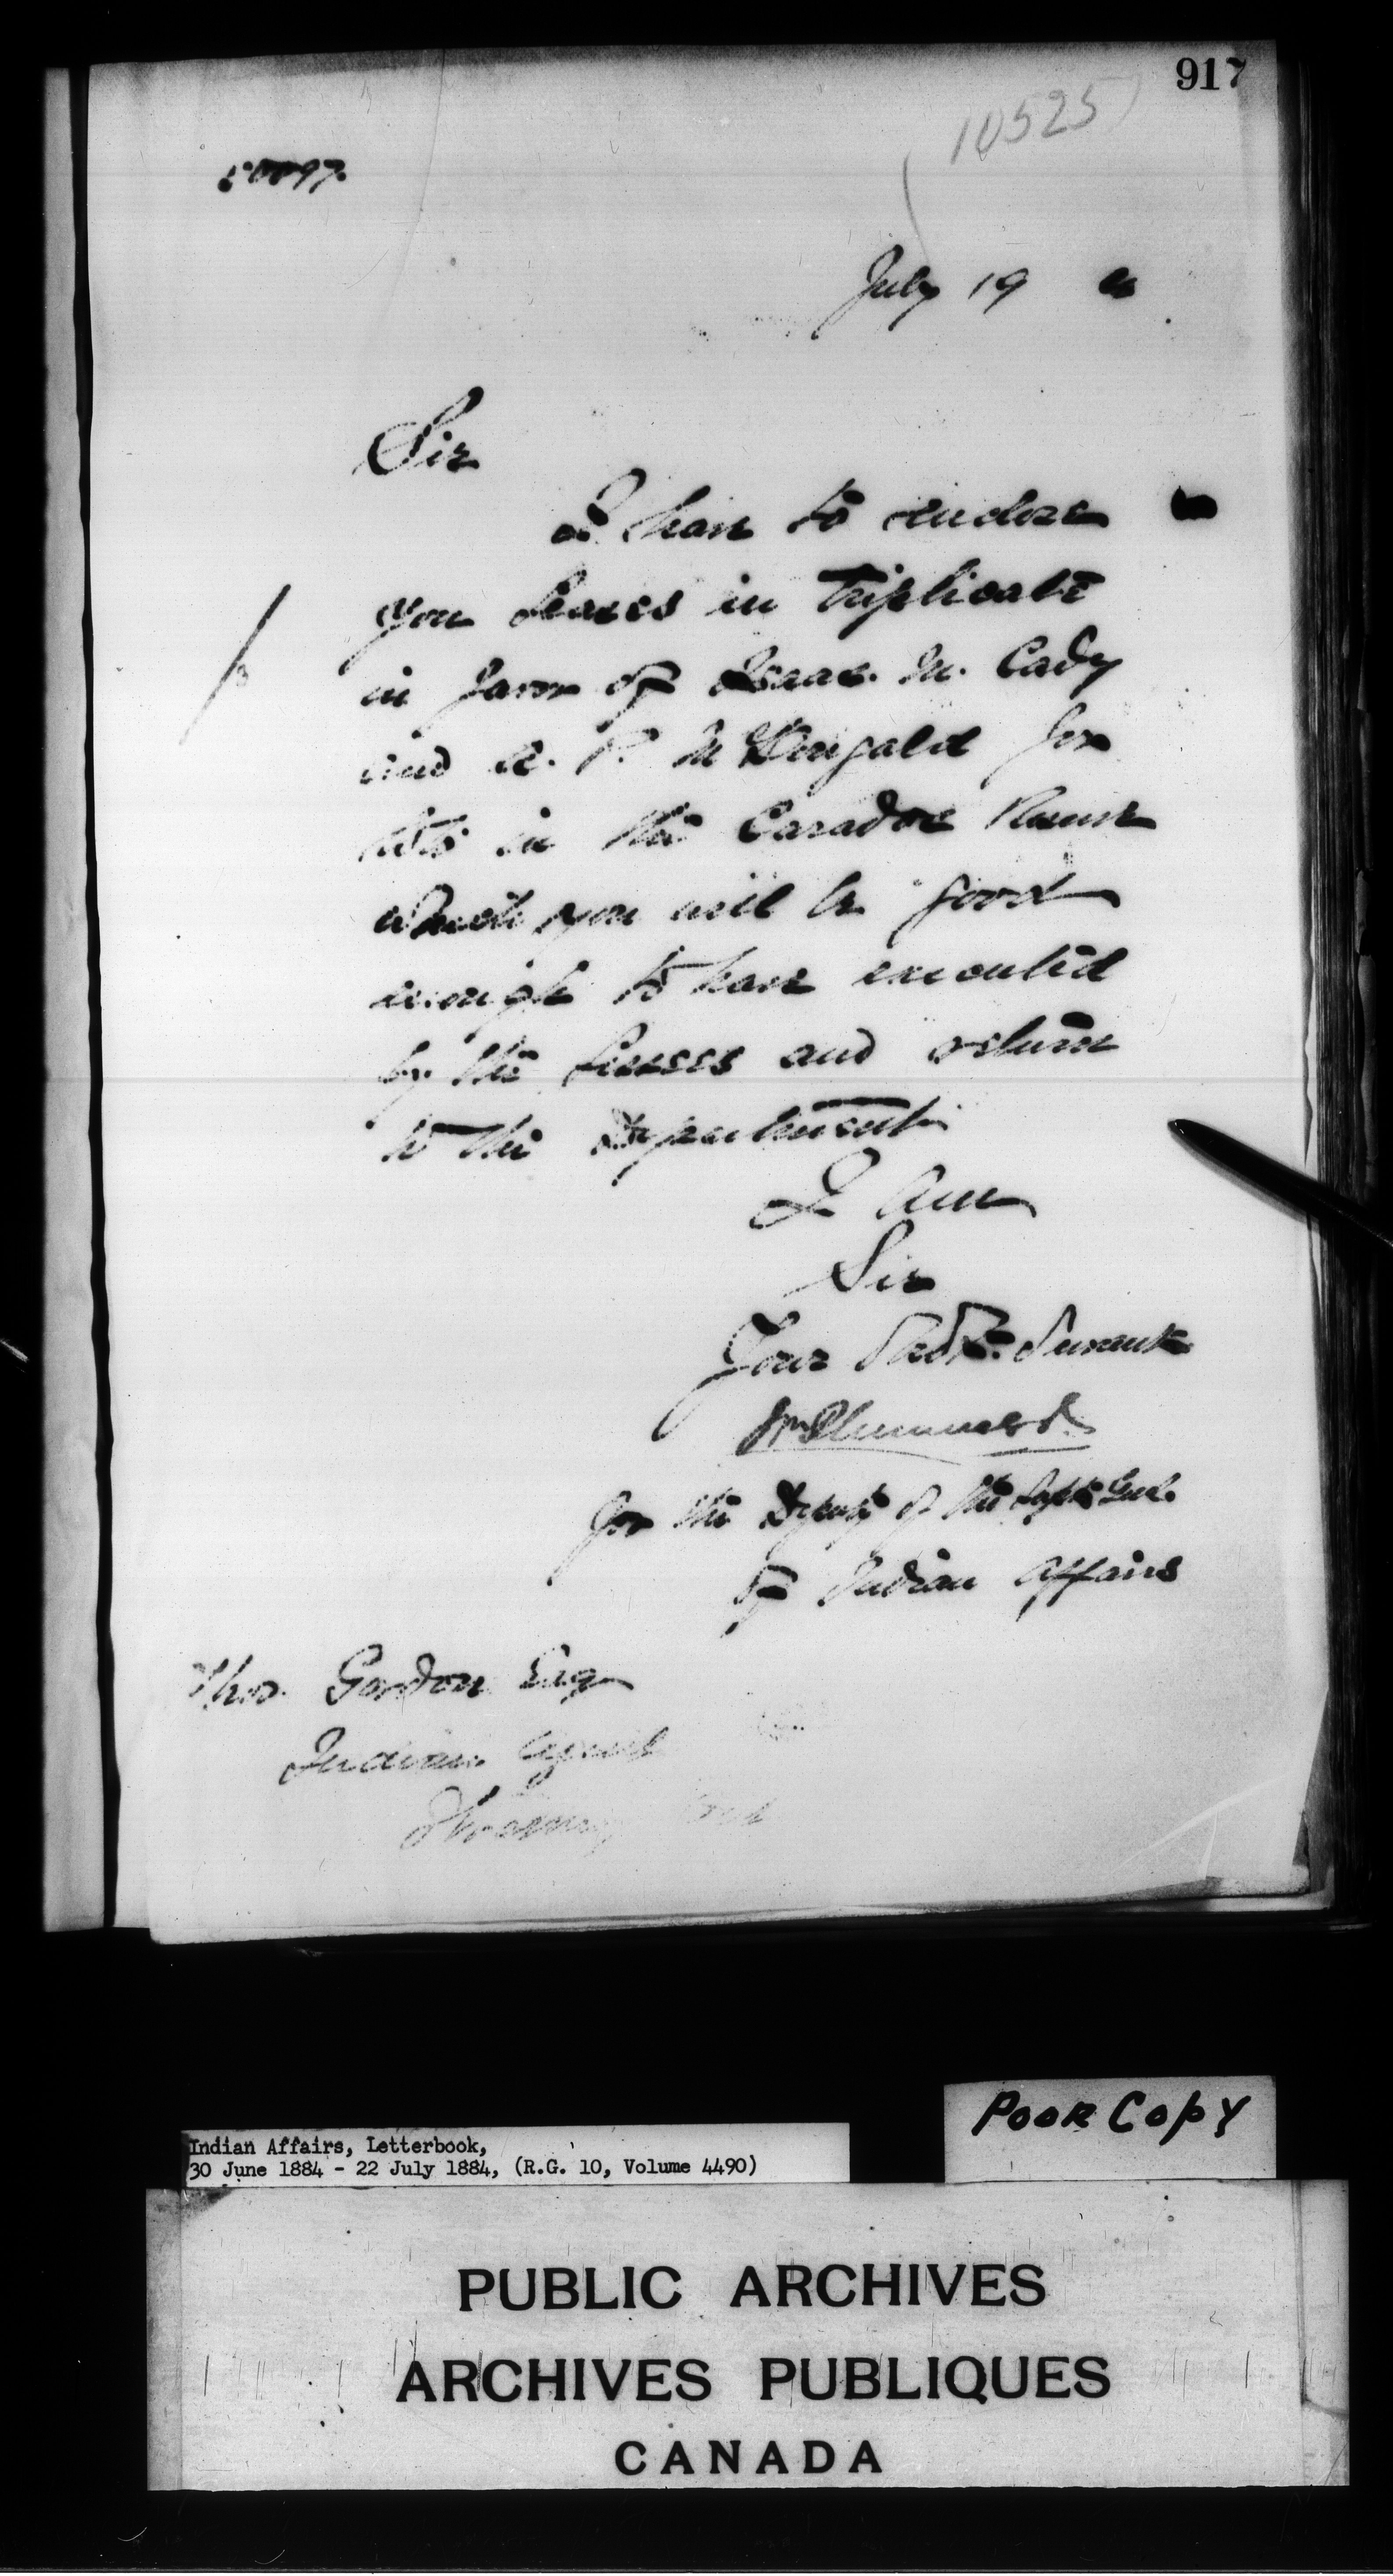 917
10525
July 19
Sir
I have to enclose
you Leases in Triplicate
in favor of Isaac M. Cady
and A. P. McDougald for
lots in the Caradoc Reserve
which you will be good
enough to have executed
by the Lessees and return
to the Department
I am
Sir
Your Obdt. Servant
Wm Plummer
for the Deputy of the Supt Genl.
of Indian Affairs
Thos. Gordon Esq
Indian Agent
Poor Copy
Indian Affairs, Letterbook,
30 June 1884 - 22 July 1884, (R.G. 10, Volume 4490)
PUBLIC ARCHIVES
ARCHIVES PUBLIQUES
CANADA